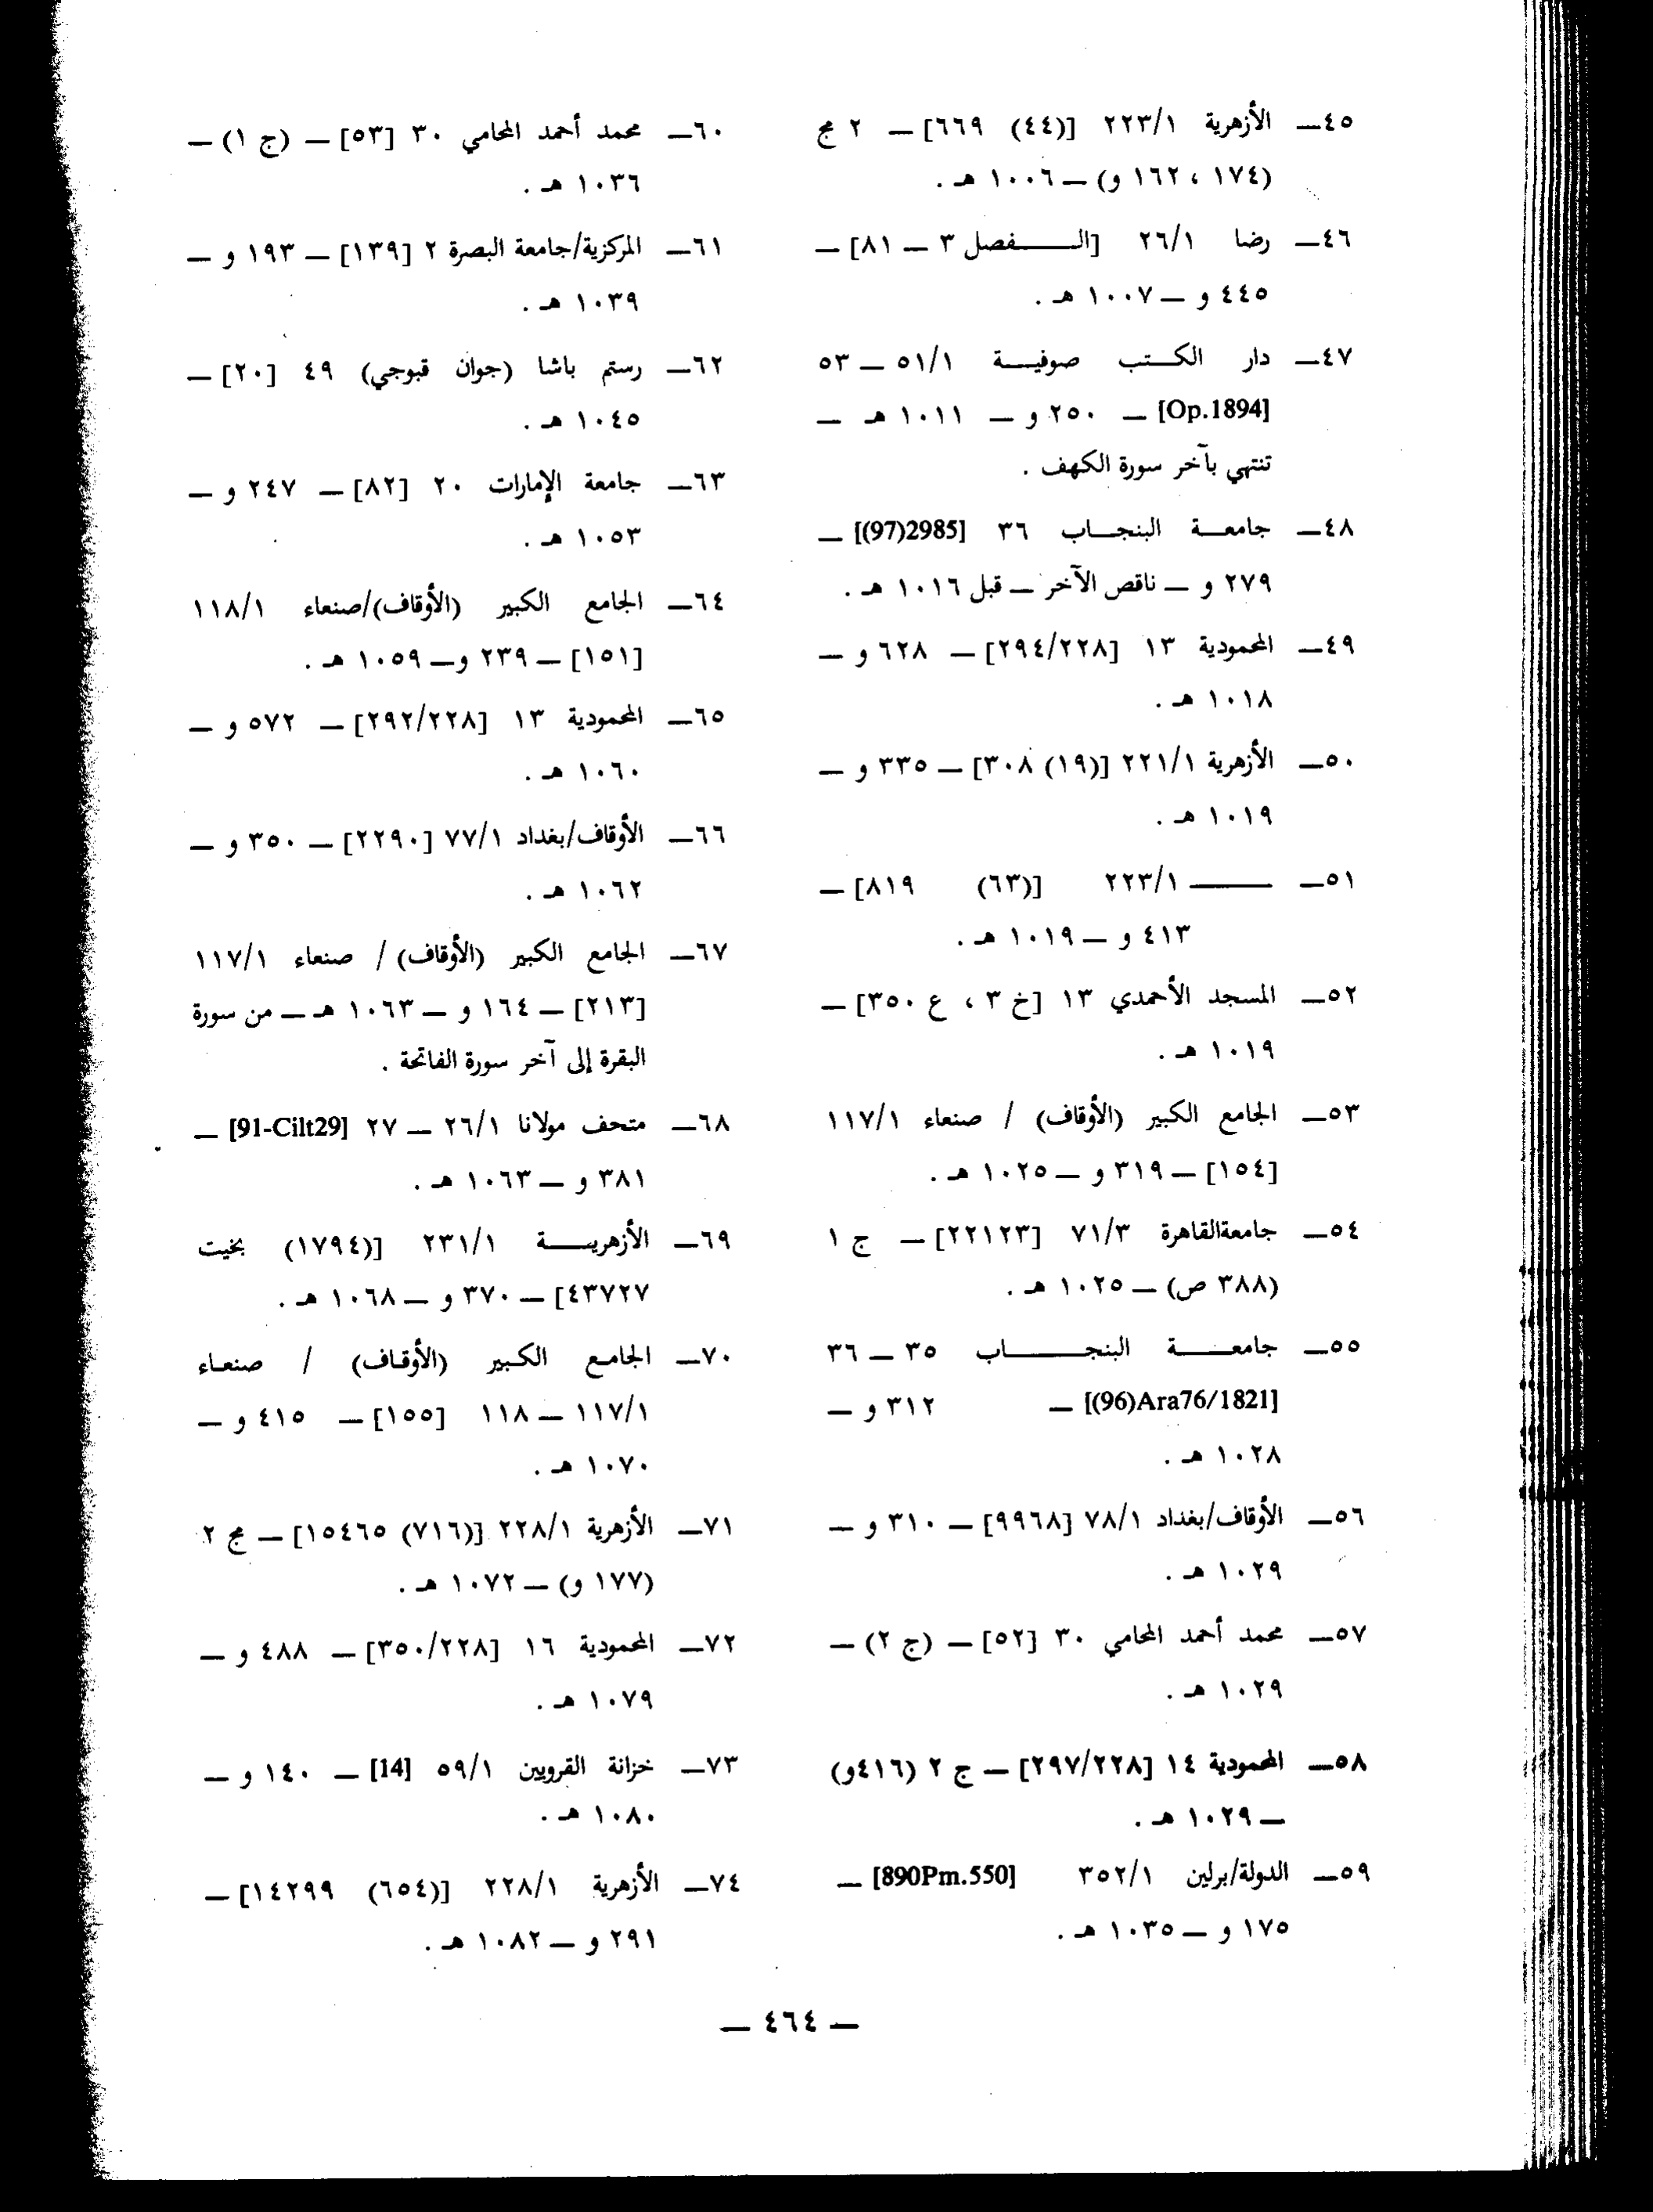 ٤٥ـ الأزهرية ٢٢٣/١ [(٤٤) ٦٦٩] ـ ٢ مج
(١٧٤ ، ١٦٢ و) ـ ١٠٠٦ هـ .
٤٦ـ رضا ٢٦/١ [الـــفصل ٣ ـ ٨١] ـ
٤٤٥ و ـ ١٠٠٧ هـ .
٤٧ـ دار الكتب صوفية ٥١/١ ـ ٥٣
[Op.1894] ـ ٢٥٠ و ـ ١٠١١ هـ ـ
تنتهي بآخر سورة الكهف .
٤٨ـ جامعة البنجاب ٣٦ [(97)2985] ـ
٢٧٩ و ـ ناقص الآخر ـ قبل ١٠١٦ هـ .
٤٩ـ المحمودية ١٣ [٢٩٤/٢٢٨] ـ ٦٢٨ و ـ
١٠١٨ هـ .
٥٠ـ الأزهرية ٢٢١/١ [(١٩) ٣٠٨] ـ ٣٣٥ و ـ
١٠١٩ هـ .
٥١ـ ـــــــ ٢٢٣/١ [(٦٣) ٨١٩] ـ
٤١٣ و ـ ١٠١٩ هـ .
٥٢ـ المسجد الأحمدي ١٣ [خ ٣ ، ع ٣٥٠] ـ
١٠١٩ هـ .
٥٣ـ الجامع الكبير (الأوقاف) / صنعاء ١١٧/١
[١٥٤] ـ ٣١٩ و ـ ١٠٢٥ هـ .
٥٤ـ جامعةالقاهرة ٧١/٣ [٢٢١٢٣] ـ ج ١
(٣٨٨ ص) ـ ١٠٢٥ هـ .
٥٥ـ جامعة البنجاب ٣٥ ـ ٣٦
[(96)Ara76/1821] ـ ٣١٢ و ـ
١٠٢٨ هـ .
٥٦ـ الأوقاف/بغداد ٧٨/١ [٩٩٦٨] ـ ٣١٠ و ـ
١٠٢٩ هـ .
٥٧ـ محمد أحمد المحامي ٣٠ [٥٢] ـ (ج ٢) ـ
١٠٢٩ هـ .
٥٨ـ المحمودية ١٤ [٢٩٧/٢٢٨] ـ ج ٢ (٤١٦و)
ـ ١٠٢٩ هـ .
٥٩ـ الدولة/برلين ٣٥٢/١ [890Pm.550] ـ
١٧٥ و ـ ١٠٣٥ هـ .
٦٠ـ محمد أحمد المحامي ٣٠ [٥٣] ـ (ج ١) ـ
١٠٣٦ هـ .
٦١ـ المركزية/جامعة البصرة ٢ [١٣٩] ـ ١٩٣ و ـ
١٠٣٩ هـ .
٦٢ـ رستم باشا (جوان قبوجي) ٤٩ [٢٠] ـ
١٠٤٥ هـ .
٦٣ـ جامعة الإمارات ٢٠ [٨٢] ـ ٢٤٧ و ـ
١٠٥٣ هـ .
٦٤ـ الجامع الكبير (الأوقاف)/صنعاء ١١٨/١
[١٥١] ـ ٢٣٩ و ـ ١٠٥٩ هـ .
٦٥ـ المحمودية ١٣ [٢٩٢/٢٢٨] ـ ٥٧٢ و ـ
١٠٦٠ هـ .
٦٦ـ الأوقاف/بغداد ٧٧/١ [٢٢٩٠] ـ ٣٥٠ و ـ
١٠٦٢ هـ .
٦٧ـ الجامع الكبير (الأوقاف) / صنعاء ١١٧/١
[٢١٣] ـ ١٦٤ و ـ ١٠٦٣ هـ ـ من سورة
البقرة إلى آخر سورة الفاتحة .
٦٨ـ متحف مولانا ٢٦/١ ـ ٢٧ [91-Cilt29] ـ
٣٨١ و ـ ١٠٦٣ هـ .
٦٩ـ الأزهرية ٢٣١/١ [(١٧٩٤) بخيت
٤٣٧٢٧] ـ ٣٧٠ و ـ ١٠٦٨ هـ .
٧٠ـ الجامع الكبير (الأوقاف) / صنعاء
١١٧/١ ـ ١١٨ [١٥٥] ـ ٤١٥ و ـ
١٠٧٠ هـ .
٧١ـ الأزهرية ٢٢٨/١ [(٧١٦) ١٥٤٦٥] ـ مج ٢
(١٧٧ و) ـ ١٠٧٢ هـ .
٧٢ـ المحمودية ١٦ [٣٥٠/٢٢٨] ـ ٤٨٨ و ـ
١٠٧٩ هـ .
٧٣ـ خزانة القرويين ٥٩/١ [14] ـ ١٤٠ و ـ
١٠٨٠ هـ .
٧٤ـ الأزهرية ٢٢٨/١ [(٦٥٤) ١٤٢٩٩] ـ
٢٩١ و ـ ١٠٨٢ هـ .
ـ ٤٦٤ ـ